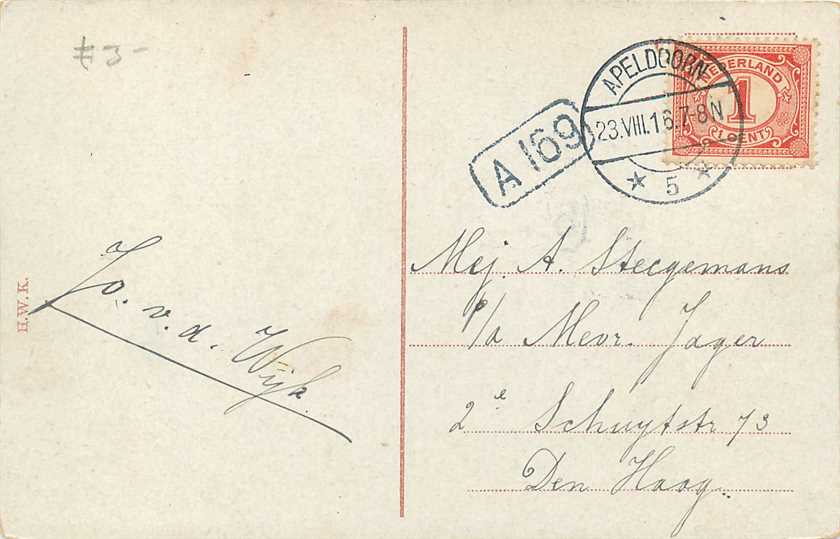 #3-
APELDOORN
23.VIII.16.7-8N
5
NEDERLAND
1
(1 CENT)
A 169
H.W.K.
Jo. v. d. Wijk.
Mej. A. Steegemans
p/a Mevr. Jager
2e Schuytstr 73
Den Haag.